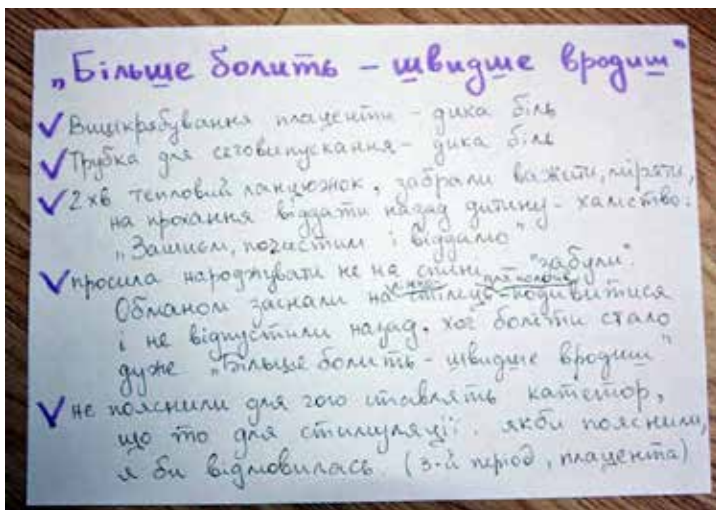 „Більше болить – швидше вродиш"
Вишкрябування плаценти – дика біль
Трубка для сечовипускання – дика біль
2 хв тепловий ланцюжок, забрали важити, міряти,
на прохання віддати назад дитину – хамство:
„Зашием, почистим і віддамо"
просила народжувати не на спині – "забули".
Обманом загнали на стілець – подивитися
і не відпустили назад, хоч боліти стало
дуже „Більше болить – швидше вродиш"
не пояснили для чого ставлять катетор,
що то для стимуляції. якби пояснили,
я би відмовилась (3-й період, плацента)